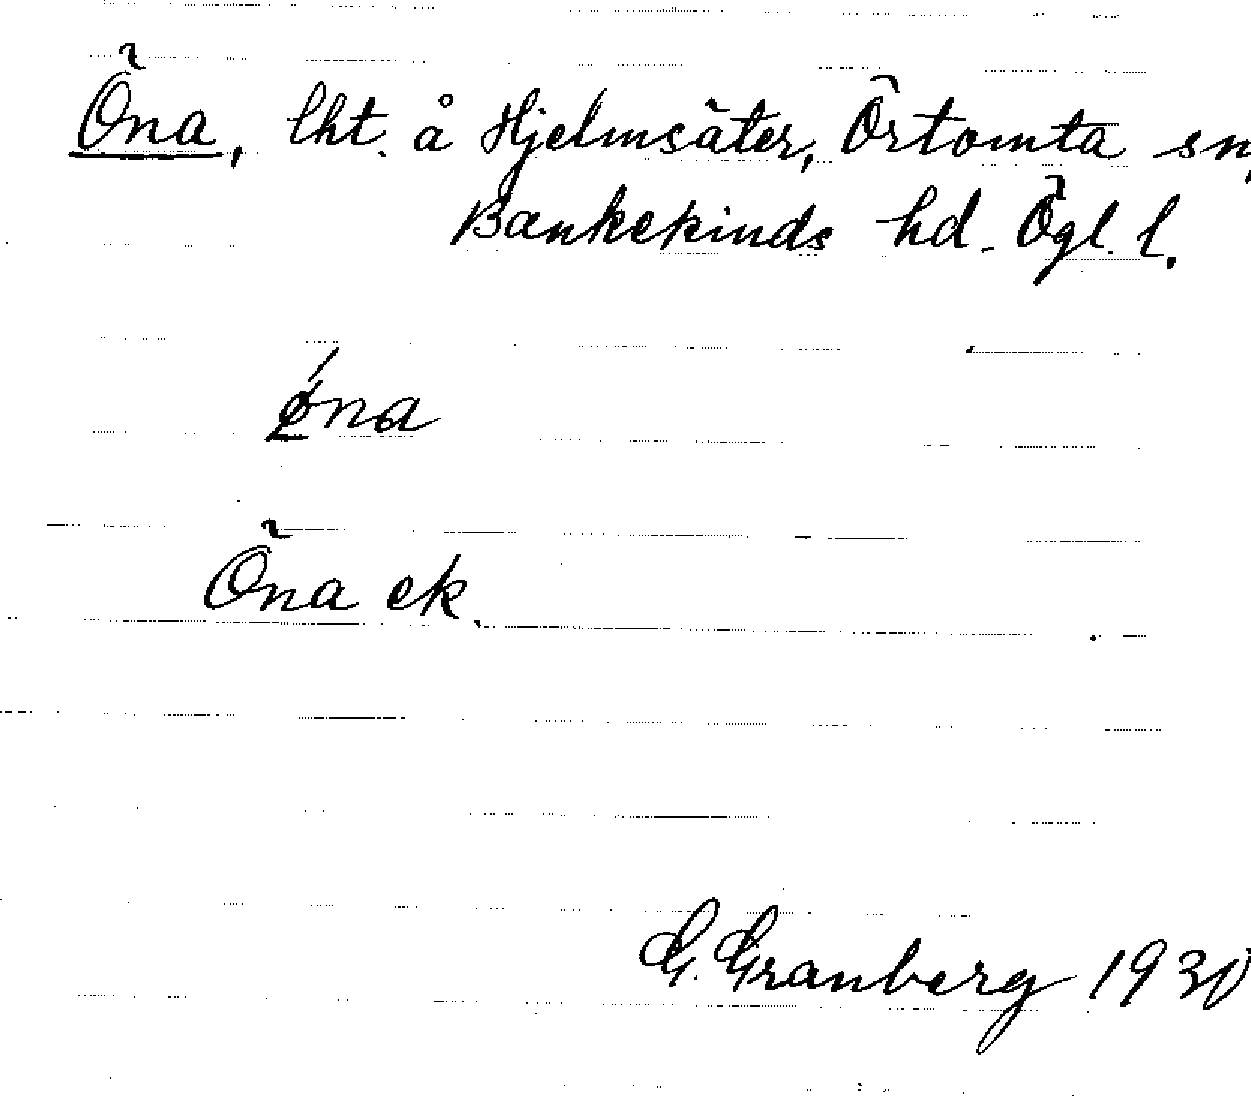 Öna, lht. å Hjelmsäter, Örtomta sn,
Bankekinds hd. Ögl. l.
ǿna
Öna ek.
G. Granberg 1930